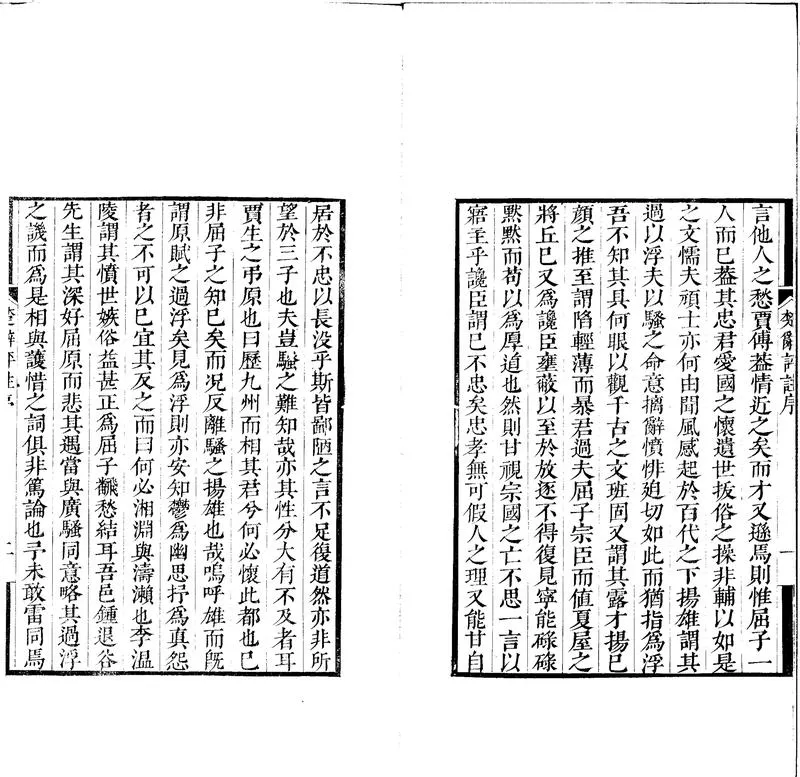 言他人之愁賈傅葢情近之矣而才又遜焉則惟屈子一
人而已葢其忠君愛國之懷遺世拔俗之操非輔以如是
之文懦夫頑士亦何由聞風感起於百代之下揚雄謂其
過以浮夫以騷之命意摛辭憤悱廹切如此而猶指為浮
吾不知其具何眼以觀千古之文班固又謂其露才揚已
顔之推至謂陷輕薄而暴君過夫屈子宗臣而値夏屋之
將丘已又爲讒臣壅蔽以至於放逐不得復見寧能碌碌
黙黙而苟以爲厚道也然則甘視宗國之亡不思一言以
寤主乎讒臣謂已不忠矣忠孝無可假人之理又能甘自
楚辭評註序
一
居於不忠以長没乎斯皆鄙陋之言不足復道然亦非所
望於三子也夫豈騷之難知哉亦其性分大有不及者耳
賈生之弔原也曰歷九州而相其君兮何必懷此都也已
非屈子之知已矣而况反離騷之揚雄也哉嗚呼雄而旣
謂原賦之過浮矣見爲浮則亦安知鬱爲幽思抒爲真怨
者之不可以已宜其反之而曰何必湘淵與濤瀨也李温
陵謂其憤世嫉俗益甚正爲屈子飜愁結耳吾邑鍾退谷
先生謂其深好屈原而悲其遇當與廣騷同意略其過浮
之譏而爲是相與護惜之詞俱非篤論也予未敢雷同焉
楚辭評註序
二